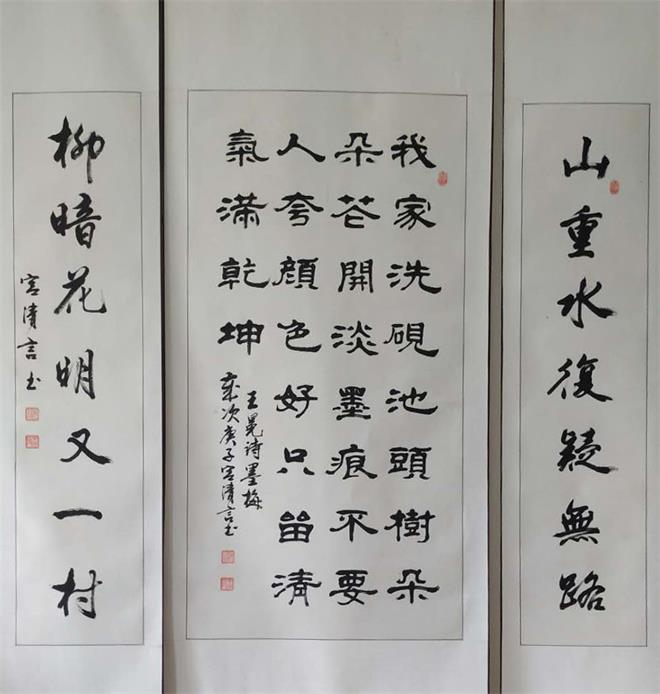 山重水復疑無路
我家洗硯池頭樹朵
朵花開淡墨痕不要
人夸顏色好只留清
氣滿乾坤
王冕诗墨梅
歲次庚子宫清言书
柳暗花明又一村
宫清言书